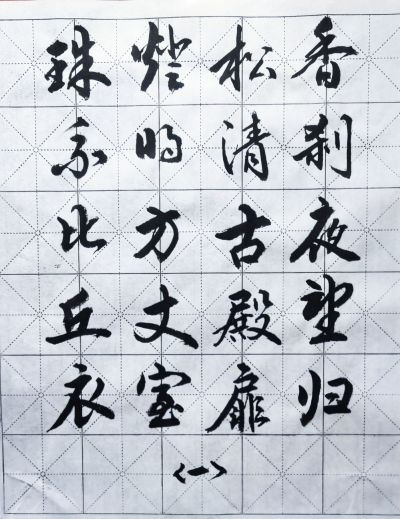 香刹夜望归
松清古殿扉
燈明方丈室
珠系比丘衣
<一>